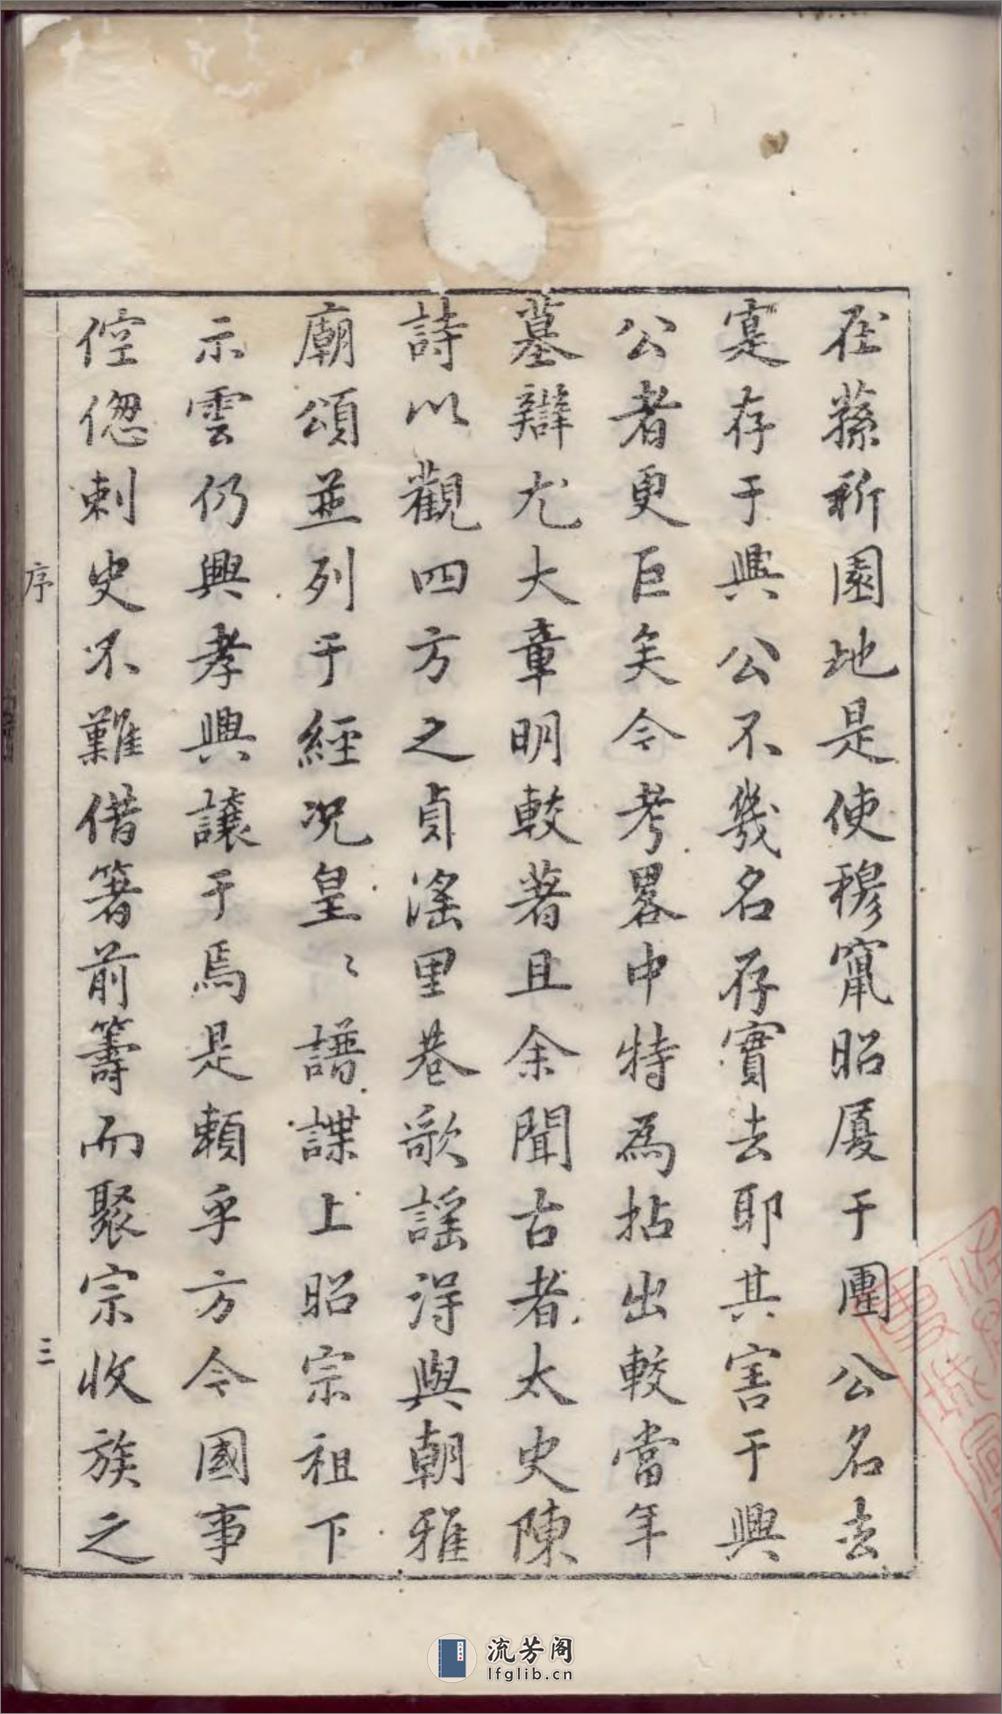 在蓀祈園地是使穆竄昭厦于團公名去
寔存于興公不幾名存實去耶其害于興
公者更巨矣今考畧中特為拈出較當年
墓辯尤大章明較著且余聞古者太史陳
詩以觀四方之貞滛里巷歌謡得與朝雅
廟頌並列于經况皇〻譜諜上昭宗祖下
示雲仍興孝興讓于焉是頼乎方今國事
倥偬刺史不難借箸前籌而聚宗收族之
序
三
流芳阁
lfglib.cn